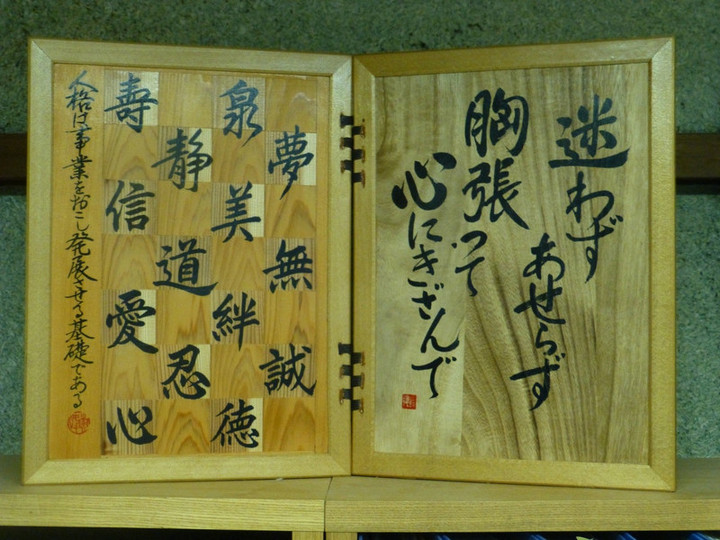 迷わず
あせらず
胸張って
心にきざんで
夢無誠
泉美絆徳
静道忍
寿信愛心
人格は事業をおこし発展させる基礎である